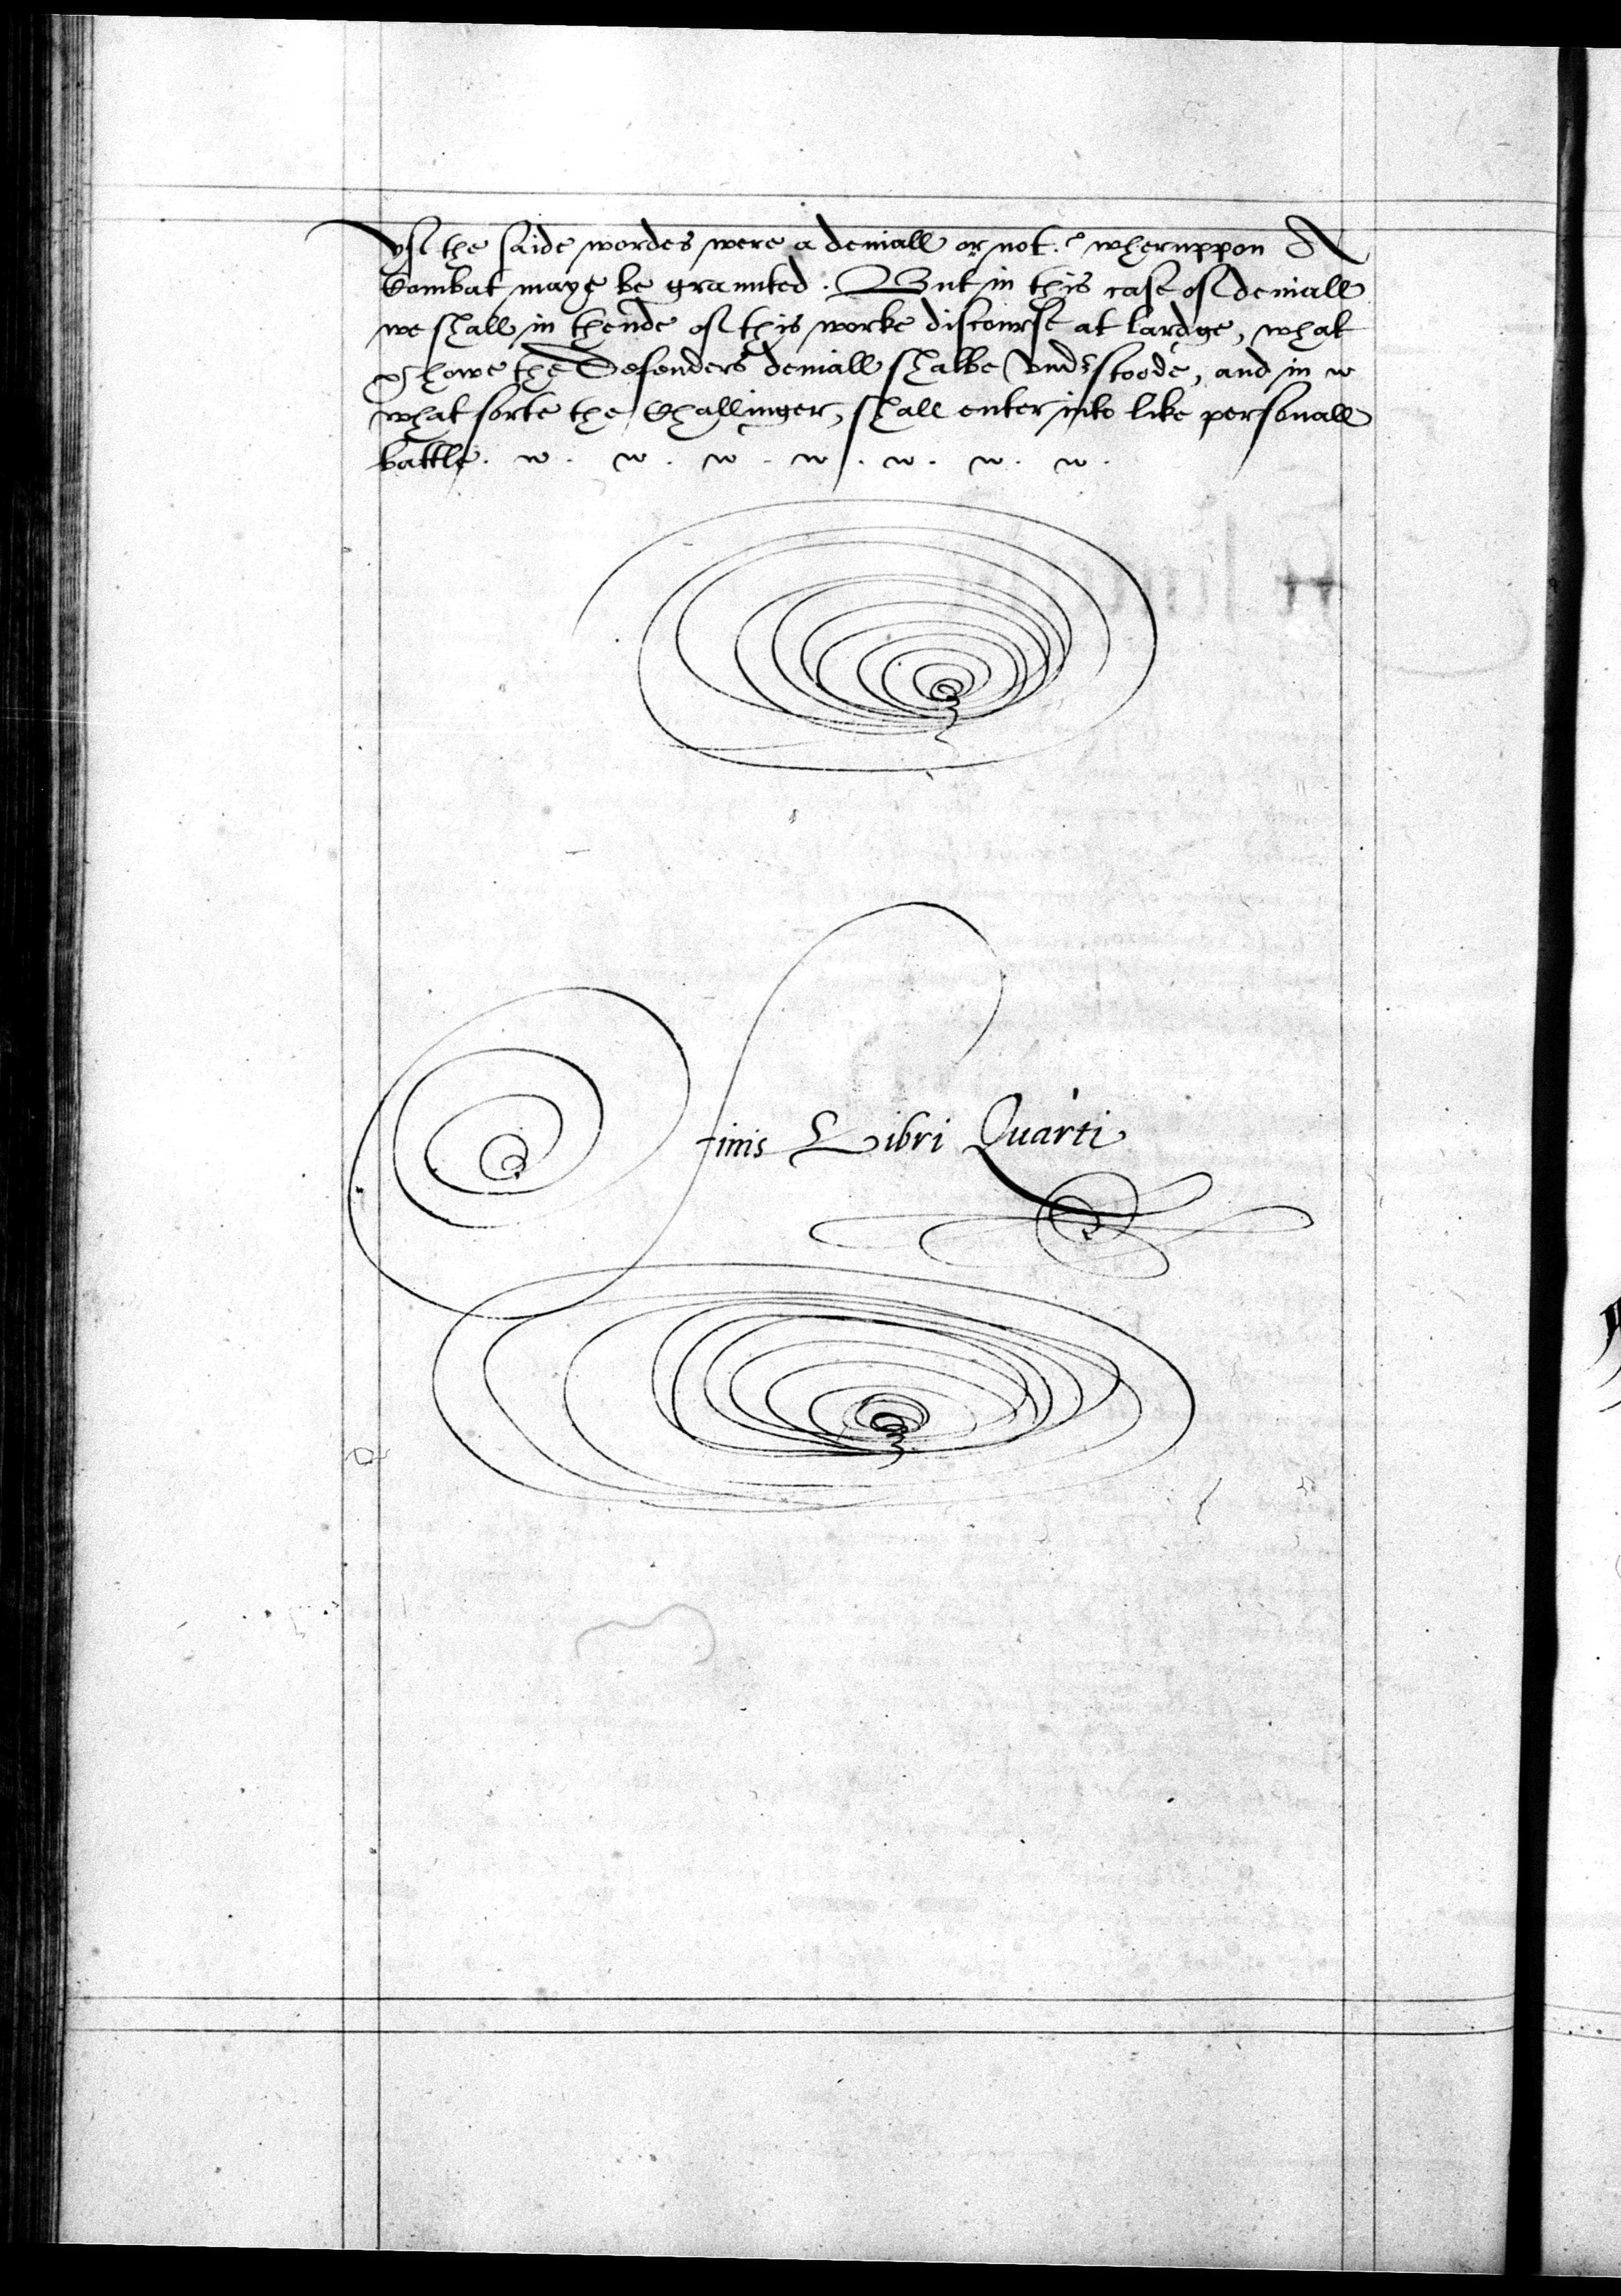 yf the saide wordes were a deniall or not? wheruppon A
Combat maye be graunted. But in this case of deniall
we shall in thende of this worke discourse at lardge, what
& howe the Defenders deniall shalbe vnderstoode, and in
what sorte the Challinger, shall enter into like personall
battle.
finis Libri Quarti